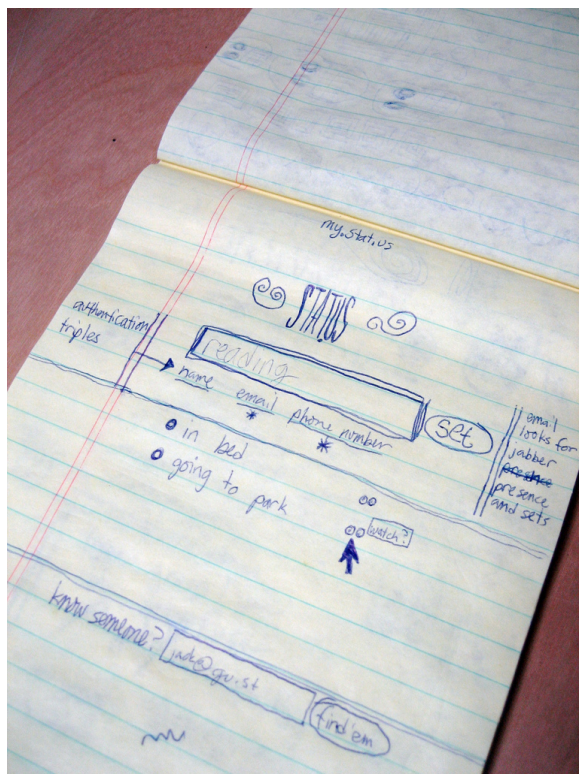 my.stat.us
STATUS
authentication
triples
reading
name email phone number
set
email
looks for
jabber
presence
presence
and sets
in bed
going to park
watch?
know someone?
find'em